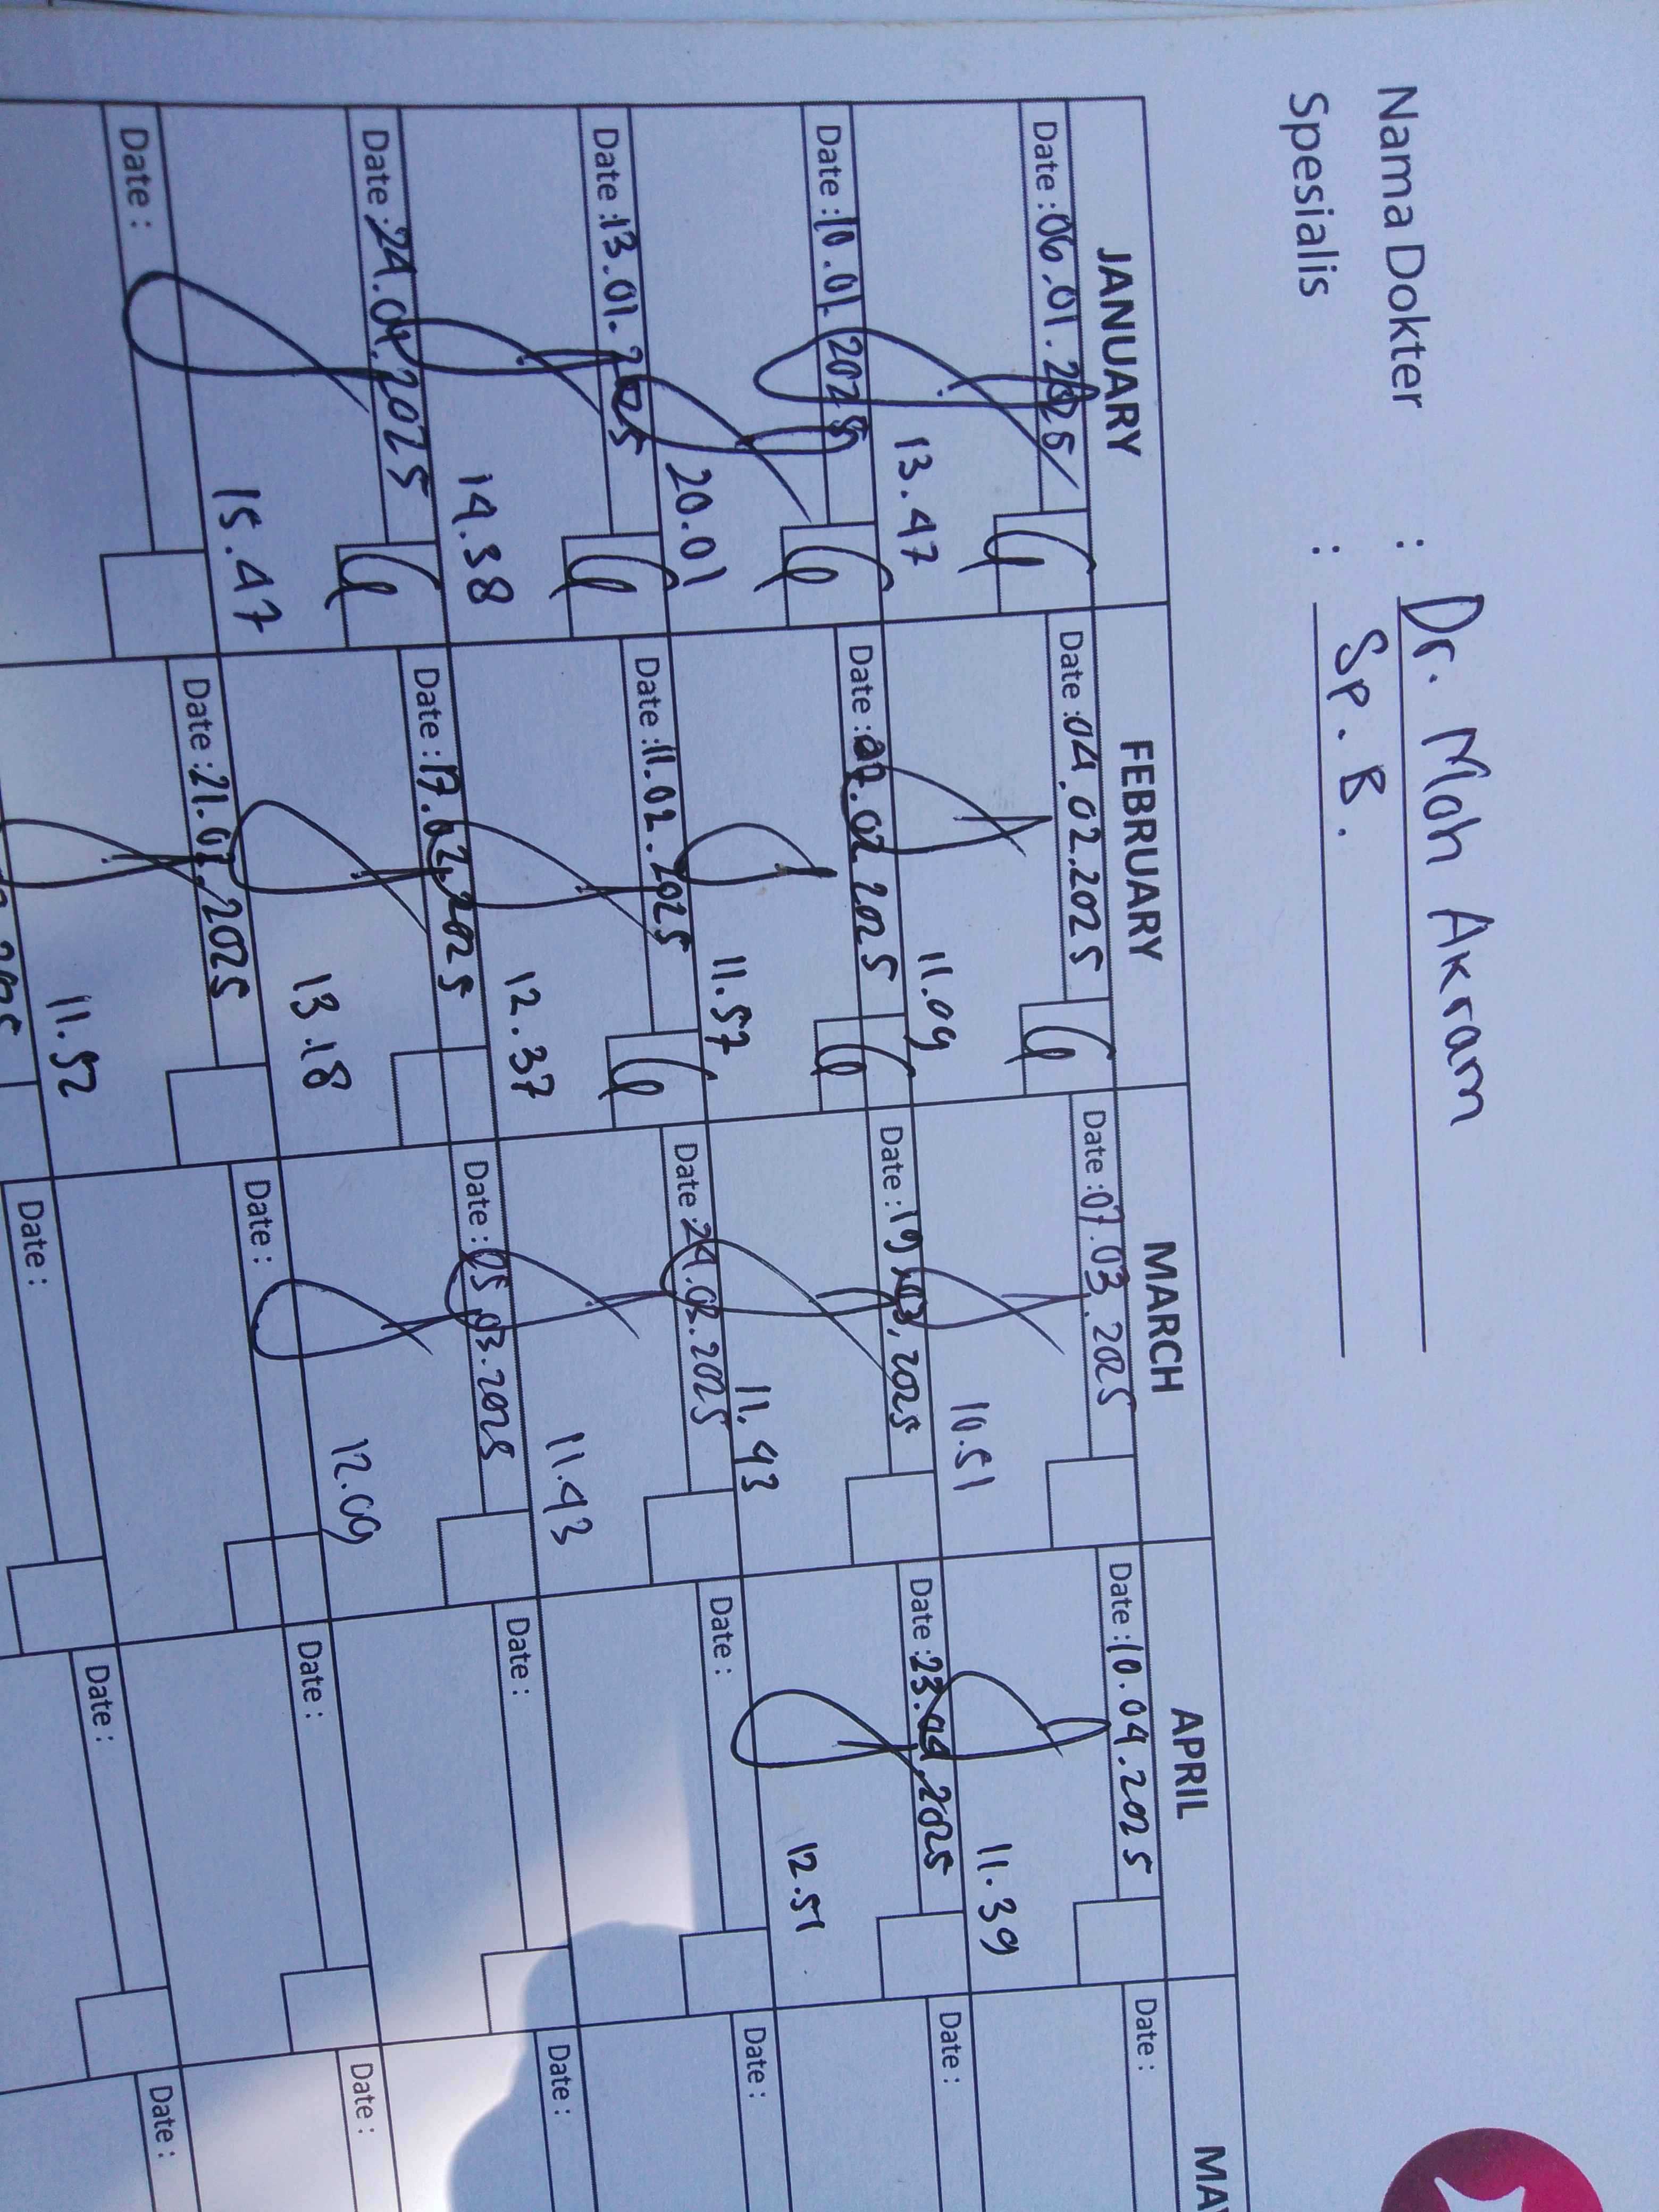 Nama Dokter : Dr. Moh Akram
Spesialis : Sp. B.
JANUARY FEBRUARY MARCH APRIL
Date : 06.01.2025 Date : 04.02.2025 Date : 07.03.2025 Date : 10.04.2025 Date :
13.47 11.09 10.51 11.39
Date : 10.01.2025 Date : 07.02.2025 Date : 19.03.2025 Date : 23.04.2025 Date :
20.01 11.57 11.43 12.51
Date : 13.01.2025 Date : 11.02.2025 Date : 24.03.2025 Date : Date :
14.38 12.37 11.43
Date : 24.01.2025 Date : 17.02.2025 Date : 05.03.2025 Date : Date :
15.47 13.18 12.09
Date : Date : 21.02.2025 Date : Date : Date :
11.52
Date : Date : Date :